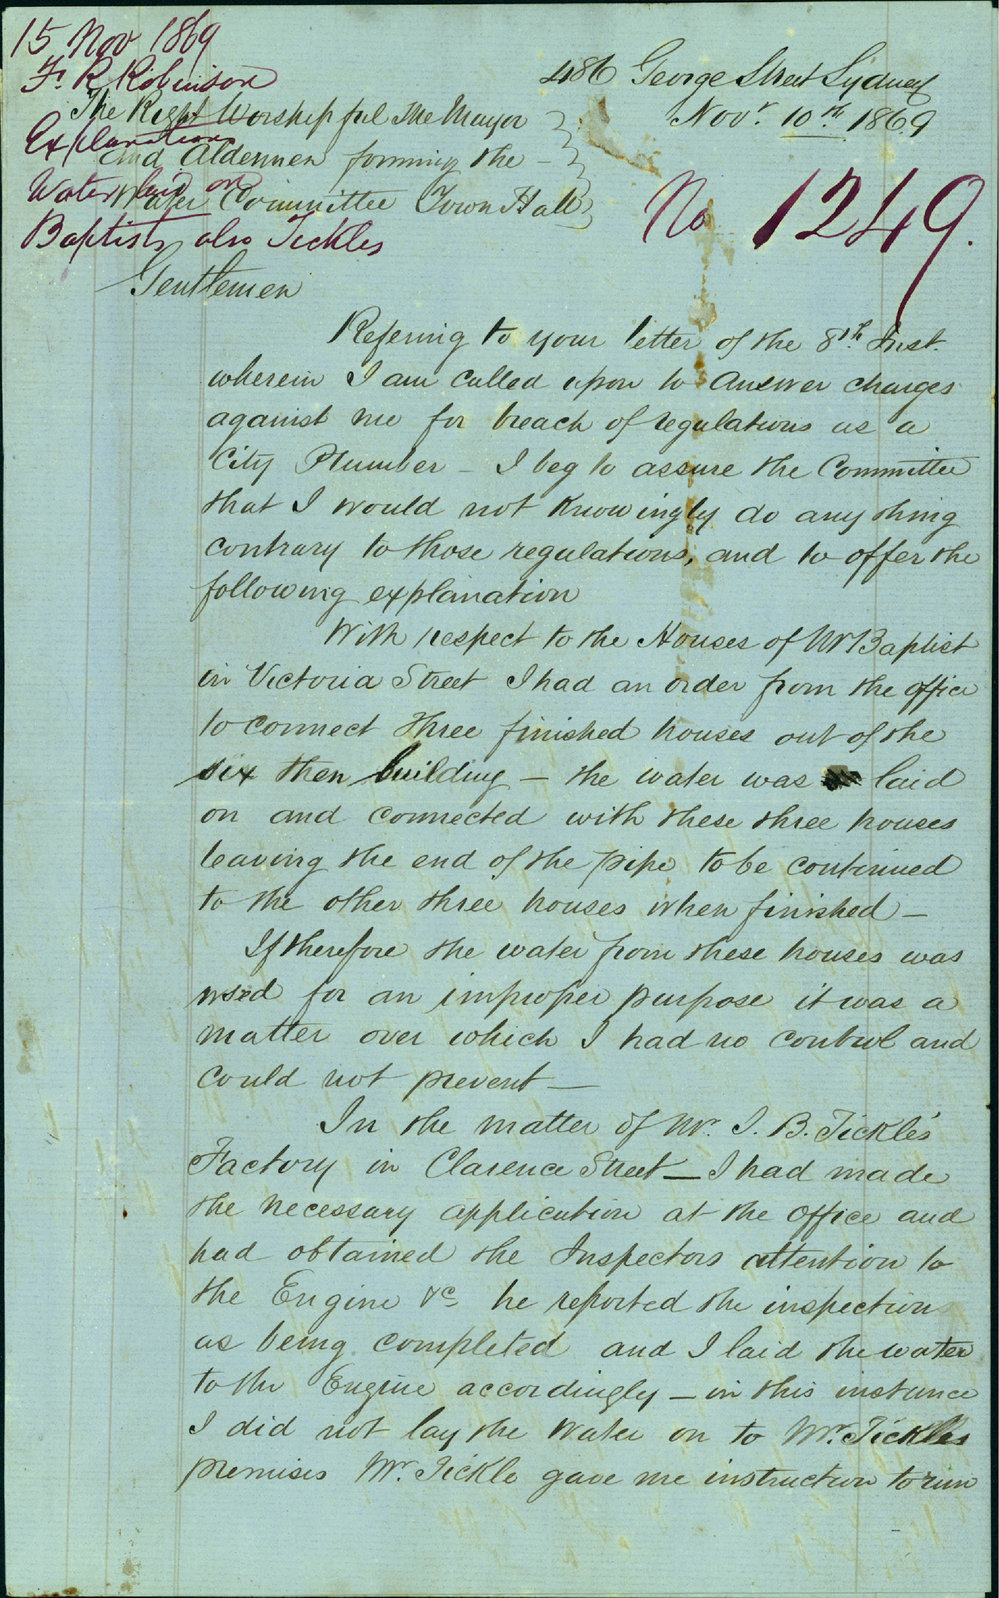 15 Nov 1869
F. R. Robinson
Explanation
Water laid on
Baptists, also Tickles
486 George Street Sydney
Novr. 10th 1869
No 1249.
The Right Worshipful The Mayor
and Aldermen forming the –
Water Committee Town Hall
Gentlemen
Referring to your letter of the 8th Inst.
wherein I am called upon to answer charges
against me for breach of regulations as a
City Plumber – I beg to assure the Committee
that I would not knowingly do any thing
contrary to those regulations, and to offer the
following explanation
With respect to the Houses of Mr Baptist
in Victoria Street I had an order from the office
to connect three finished houses out of the
six then building – the water was laid
on and connected with these three houses
leaving the end of the pipe to be continued
to the other three houses when finished –
If therefore the water from these houses was
used for an improper purpose it was a
matter over which I had no control and
could not prevent –
In the matter of Mr. I. B. Tickle's
Factory in Clarence Street – I had made
the necessary application at the office and
had obtained the Inspectors attention to
the Engine &c he reported the inspection
as being completed and I laid the water
to the Engine accordingly – in this instance
I did not lay the Water on to Mr. Tickles
premises Mr. Tickle gave me instruction to run